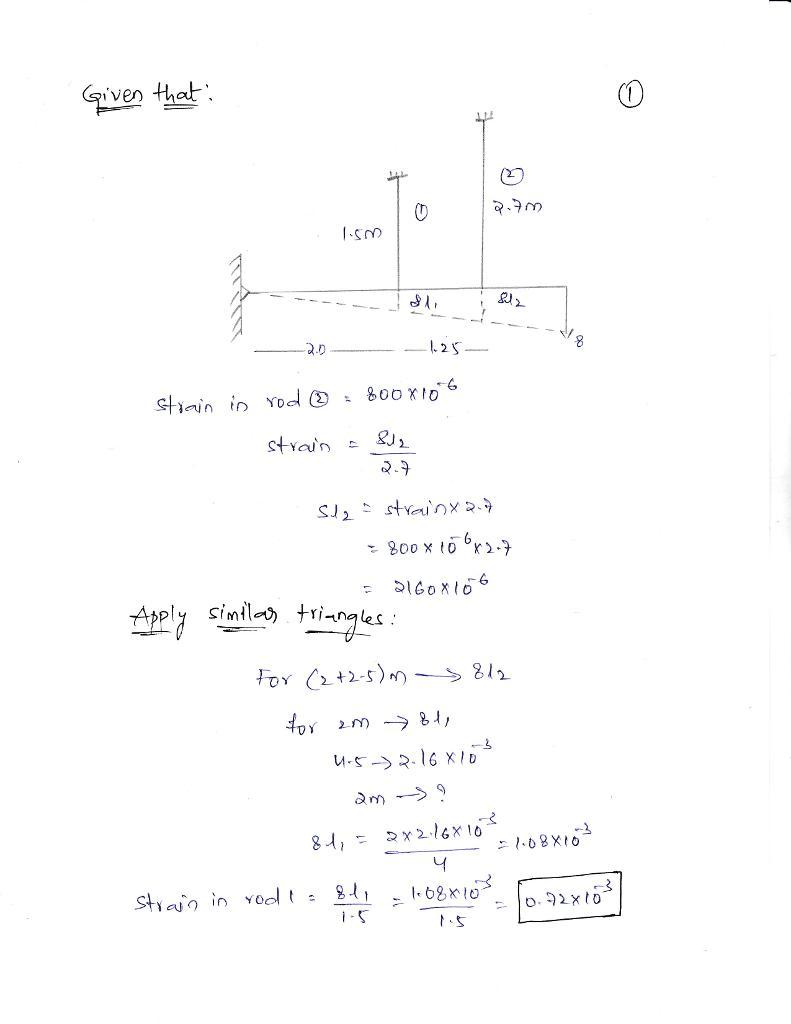 Given that:
①
②
2.7m
①
1.5m
δl₁
δl₂
2.0
1.25
δ
strain in rod ② = 800×10⁻⁶
strain = δl₂ / 2.7
δl₂ = strain×2.7
= 800×10⁻⁶×2.7
= 2160×10⁻⁶
Apply similar triangles:
For (2+2.5)m → δl₂
for 2m → δl₁
4.5 → 2.16×10⁻³
2m → ?
δl₁ = 2×2.16×10⁻³ / 4 = 1.08×10⁻³
Strain in rod 1 = δl₁ / 1.5 = 1.08×10⁻³ / 1.5 = 0.72×10⁻³